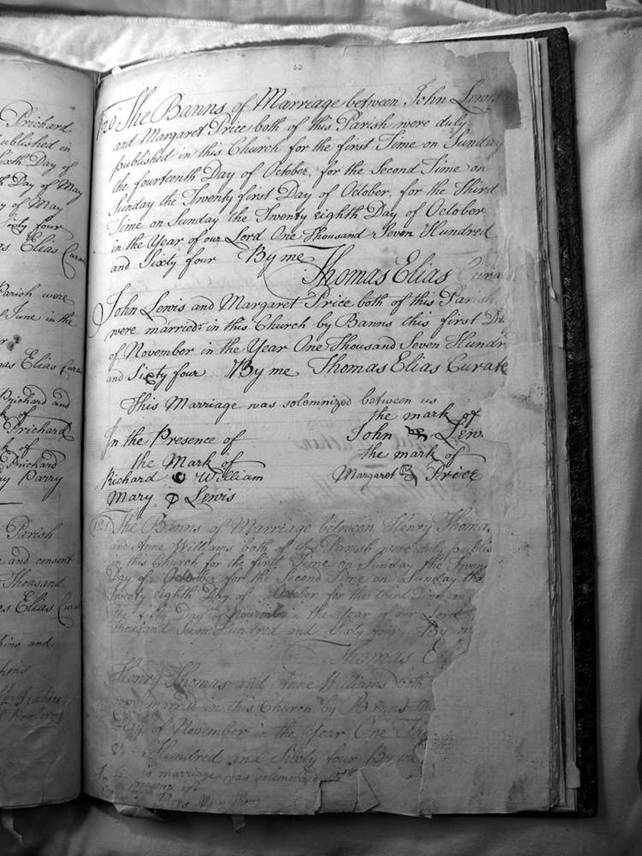 Prichard
ublished in
ixth Day of
h Day of May
y of May
ixty four
s Elias Curate
Parish were
of June in the
s Elias Curate
Prichard and
k of
Prichard
k of
Prichard
y Parry
Parish
and consent
Thousand
s Elias Curate
kins and
62
The Banns of Marriage between John Lewis
and Margaret Price both of this Parish were duly
published in this Church for the first Time on Sunday
the fourteenth Day of October, for the Second Time on
Sunday the Twenty first Day of October, for the third
Time on Sunday the Twenty eighth Day of October
in the Year of our Lord One Thousand Seven Hundred
and Sixty four By me
Thomas Elias Curate
John Lewis and Margaret Price both of this Parish
were married in this Church by Banns this first Da
of November in the Year One Thousand Seven Hundr
and Sixty four By me Thomas Elias Curate
This Marriage was solemnized between us
the mark of
In the Presence of John Lew
the Mark of the mark of
Richard William Margaret Price
Mary Lewis
The Banns of Marriage between Henry Thomas
and Anne Williams both of this Parish were duly publis
in this Church for the first Time on Sunday the Twent
Day of October for the Second Time on Sunday the
Twenty eighth Day of October for the third Time on
the Day of November in the Year of our Lord
thousand Seven Hundred and Sixty four By m
Thomas El
Henry Thomas and Anne Williams both
married in this Church by Banns
Day of November in the Year One Th
Hundred and Sixty four By me
marriage was solemnized